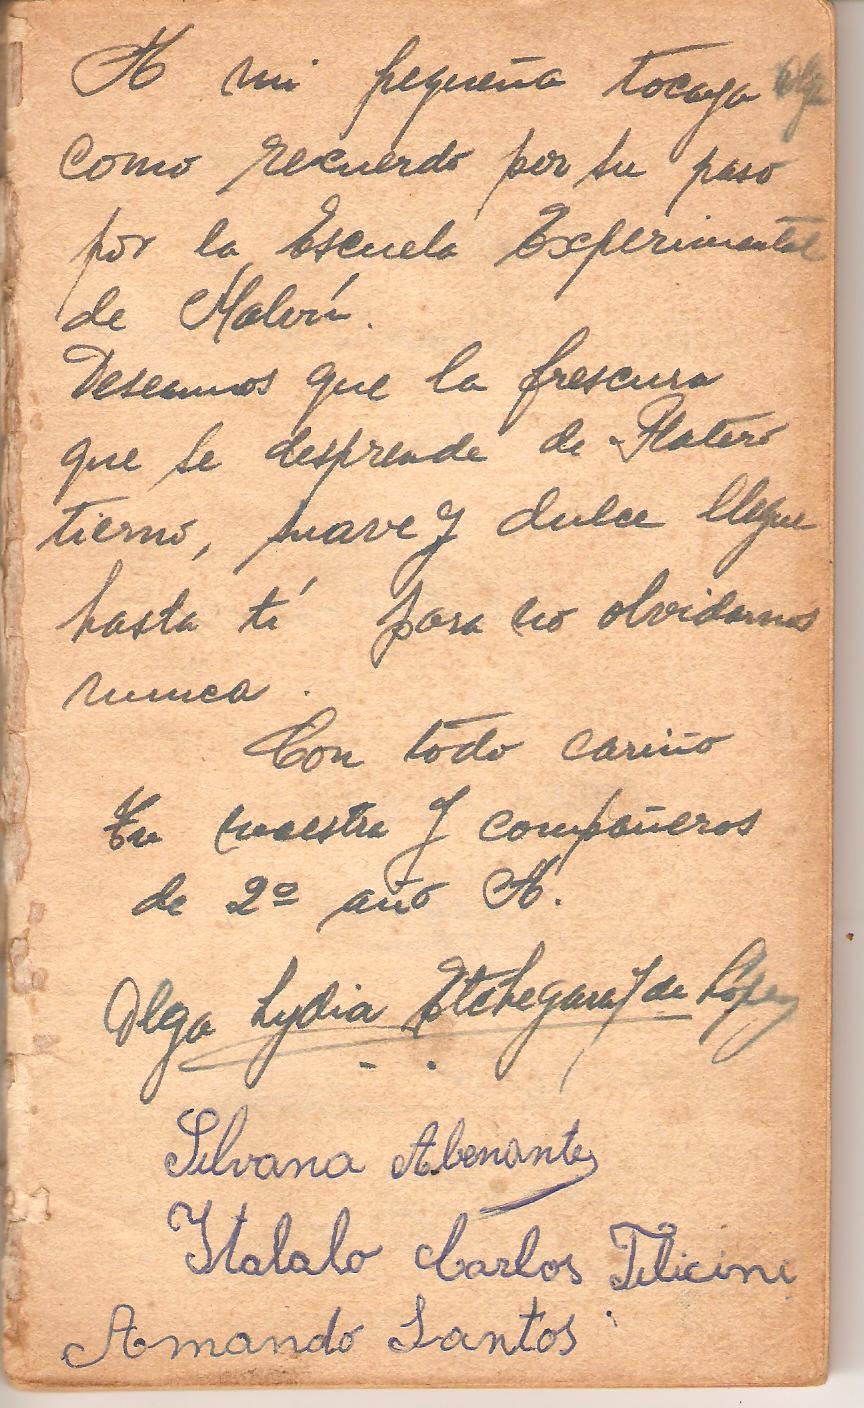 A mi pequeña tocaya Olga
como recuerdo por su paso
por la Escuela Experimental
de Malvín.
Deseamos que la frescura
que se desprende de Platero
tierno, suave y dulce llegue
hasta tí para no olvidarnos
nunca.
Con todo cariño
Tu maestra y compañeros
de 2º año A.
Olga Lydia Etchegaray de López
Silvana Abenante
Italalo Carlos Filicini
Amando Santos